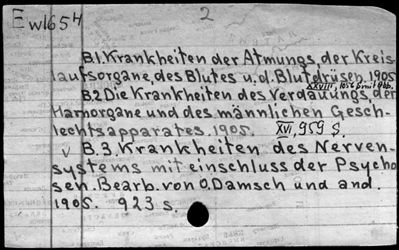 Ew1654
2
B.1. Krankheiten der Atmungs, der Kreis-
laufsorgane, des Blutes u. d. Blutdrüsen. 1905
XXVIII, 1056 S. mit Abb.
B.2 Die Krankheiten des Verdauungs, der
Harnorgane und des männlichen Gesch-
lechtsapparates. 1905. XVI, 959 S.
v B.3. Krankheiten des Nerven-
systems mit einschluss der Psycho
sen. Bearb. von O. Damsch und and.
1905. 923 s.